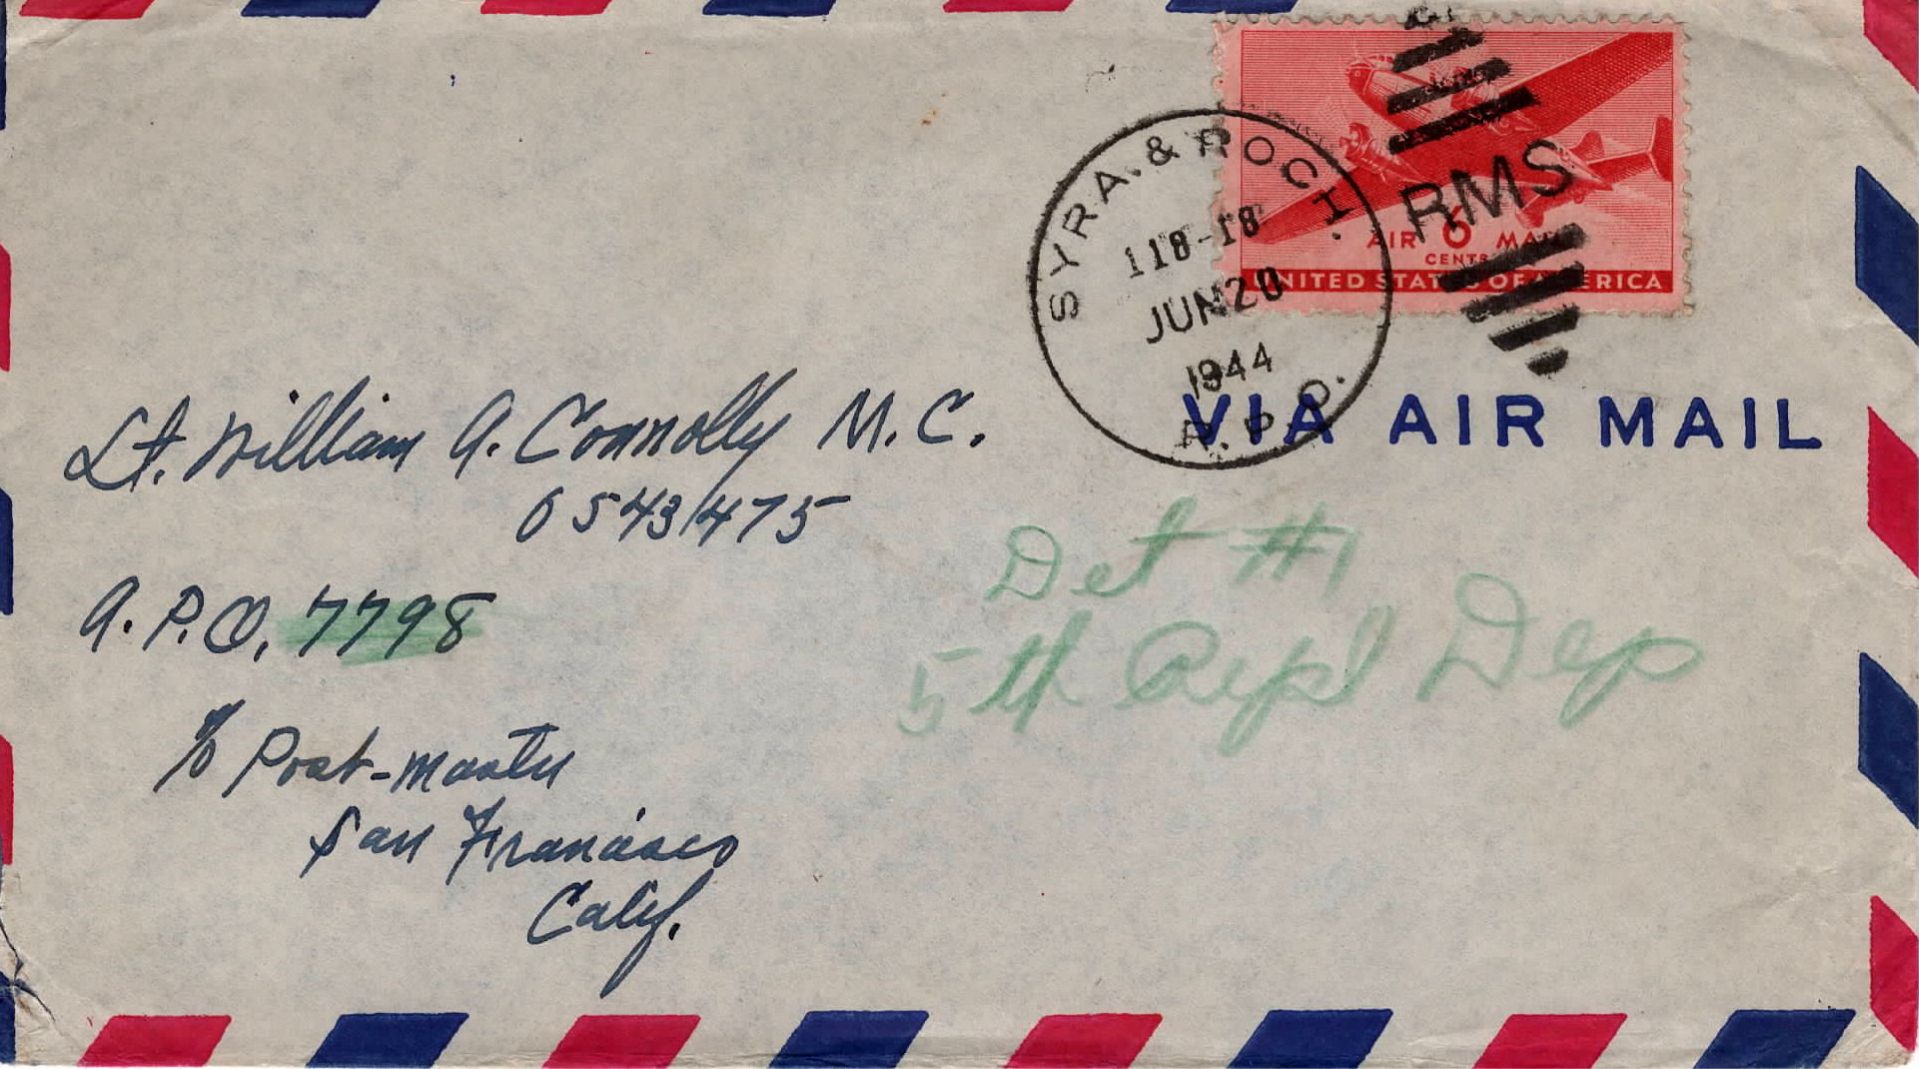 SYRA. & ROCH.
118-18
JUN 20
1944
R.P.O.
RMS
AIR 6 MAIL
CENTS
UNITED STATES OF AMERICA
VIA AIR MAIL
Lt. William A. Connolly M.C.
6543475
A.P.O. 7798
c/o Post-master
San Francisco
Calif.
Det #1
5th Repl Dep